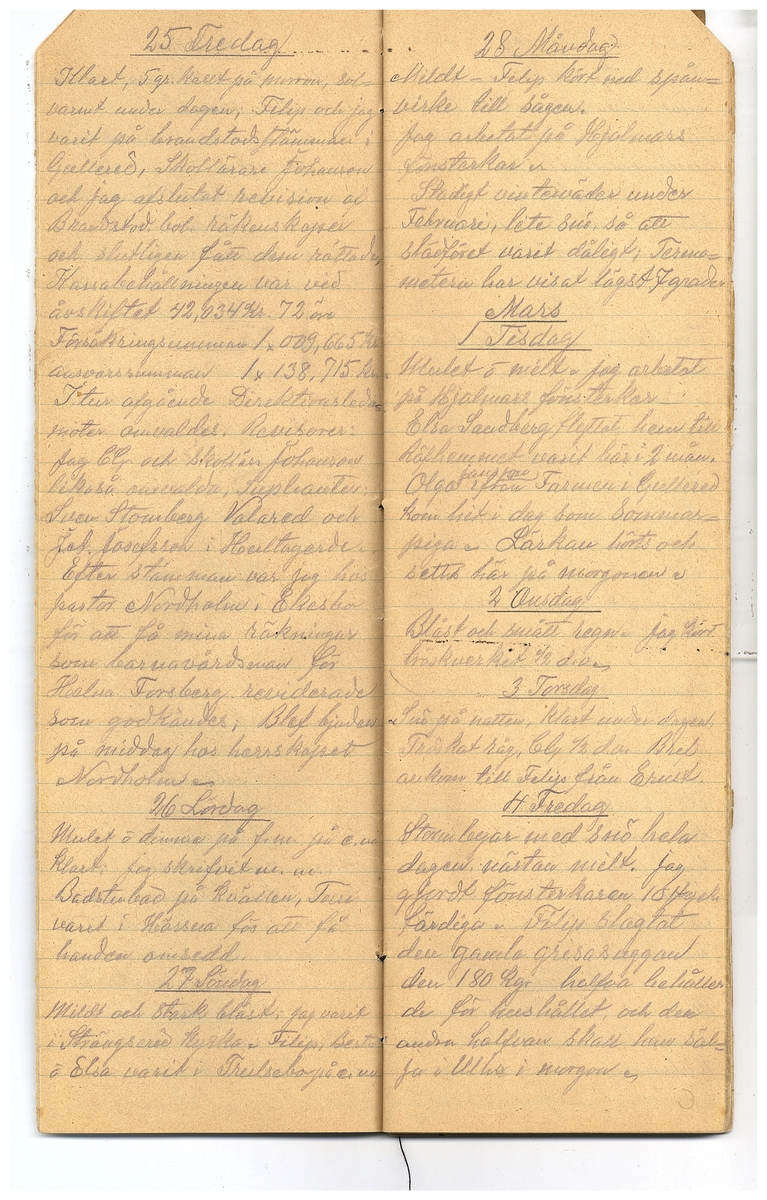 25 Fredag
Klart, 5 gr. kallt på morron, sol-
varmt under dagen; Filip och jag
varit på brandstodsstämman i
Gullered, Skollärare Johanson
och jag afslutat revision af
Brandstod. bol. räkenskaper
och slutligen fått dem rättade,
Kassabehållningen var vid
årsskiftet 42,034 Kr. 72 öre
Försäkringssumman 1x009,665 Kr
ansvarssumman 1x138,715 kr.
I tur afgående Direktionsleda-
möter omvaldes. Revisorer:
Jag CG och skollär. Johanson
likaså omvalda, Supleanter:
Sven Stomberg Valared och
Josefsson i Hultagärde.
Efter stämman var jag hos
pastor Nordholm i Ekesbo
för att få mina räkningar
som barnavårdsman för
Forsberg reviderade
som godkändes; Blef bjuden
på middag hos herrskapet
Nordholm
26 Lördag
Mulet o dimma på f.m. på e.m
klart; jag skrifvit m. m.
Badstubad på kvällen,
varit i Hössna för att få
handen omsedd.
27 Söndag
Mildt och stark blåst; jag varit
i Strängsered kyrka Filip, Berta
o Elsa varit i Trulsebo på e.m
28 Måndag
Mildt – Filip kört ned spån-
virke till sågen.
Jag arbetat på Hjalmars
fönsterkar
Stadigt vinterväder under
Februari, lite snö, så att
slädföret varit dåligt; Termo-
metern har visat lägst 7 grader
Mars
1 Tisdag
Mulet o milt jag arbetat
på Hjalmars fönsterkar
Elsa Sandberg flyttat hem till
varit här i 2 mån.
Olga Jansson ifrån Farmen i Gullered
kom hit i dag som Sommar-
piga Lärkan hörts och
setts här på morgonen
2 Onsdag
Blåst och smått regn jag kört
tröskverket 1/2 da
3 Torsdag
Snö på natten, klart under dagen;
Tröskat råg, Cg 1/2 da. Bref
ankom till Filip från Ernst.
4 Fredag
Stormbyar med snö hela
dagen, nästan milt. Jag
gjordt fönsterkaren 18 styck
färdiga Filip slagtat
den gamla grisasuggan
den 180 Kgr halfva behåller
de för hushållet, och den
andra halfvan skall han säl-
ja i Ulha i morgon